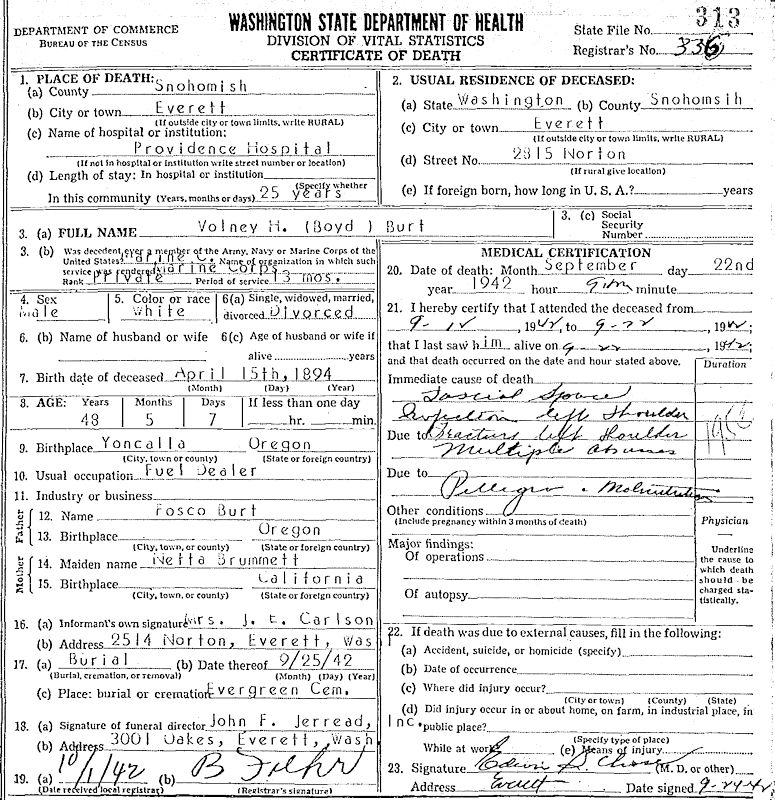 DEPARTMENT OF COMMERCE
BUREAU OF THE CENSUS
WASHINGTON STATE DEPARTMENT OF HEALTH
DIVISION OF VITAL STATISTICS
CERTIFICATE OF DEATH
State File No. 313
Registrar's No. 336
1. PLACE OF DEATH:
(a) County Snohomish
(b) City or town Everett
(If outside city or town limits, write RURAL)
(c) Name of hospital or institution:
Providence Hospital
(If not in hospital or institution write street number or location)
(d) Length of stay: In hospital or institution
(Specify whether
In this community (Years, months or days) 25 years
2. USUAL RESIDENCE OF DECEASED:
(a) State Washington (b) County Snohomsih
(c) City or town Everett
(If outside city or town limits, write RURAL)
(d) Street No. 2815 Norton
(If rural give location)
(e) If foreign born, how long in U. S. A.? years
3. (a) FULL NAME Volney H. (Boyd ) Burt
3. (c) Social Security Number
3. (b) Was decedent ever a member of the Army, Navy or Marine Corps of the
United States? Marine C. Name of organization in which such
service was rendered Marine Corps
Rank Private Period of service 13 mos.
4. Sex Male
5. Color or race White
6(a) Single, widowed, married, divorced Divorced
6. (b) Name of husband or wife
6(c) Age of husband or wife if
alive years
7. Birth date of deceased April 15th, 1894
(Month) (Day) (Year)
8. AGE: Years Months Days If less than one day
48 5 7 hr. min.
9. Birthplace Yoncalla Oregon
(City, town, or county) (State or foreign country)
10. Usual occupation Fuel Dealer
11. Industry or business
Father
12. Name Fosco Burt
13. Birthplace Oregon
(City, town, or county) (State or foreign country)
Mother
14. Maiden name Netta Brummett
15. Birthplace California
(City, town, or county) (State or foreign country)
16. (a) Informant's own signature Mrs. J. E. Carlson
(b) Address 2514 Norton, Everett, Was
17. (a) Burial (b) Date thereof 9/25/42
(Burial, cremation, or removal) (Month) (Day) (Year)
(c) Place: burial or cremation Evergreen Cem.
18. (a) Signature of funeral director John F. Jerread, Inc.
(b) Address 3001 Oakes, Everett, Wash
19. (a) 10/1/42 (b) B
(Date received local registrar) (Registrar's signature)
MEDICAL CERTIFICATION
20. Date of death: Month September day 22nd
year 1942 hour 9 PM minute
21. I hereby certify that I attended the deceased from
9-12, 1942, to 9-22, 1942;
that I last saw him alive on 9-22, 1942;
and that death occurred on the date and hour stated above.
Duration
Immediate cause of death
Fascial Space
Infection left shoulder
Due to Fracture left shoulder
Multiple
Due to
Pellegra
Other conditions
(Include pregnancy within 3 months of death)
Physician
Major findings:
Of operations
Of autopsy
Underline the cause to which death should be charged statistically.
22. If death was due to external causes, fill in the following:
(a) Accident, suicide, or homicide (specify)
(b) Date of occurrence
(c) Where did injury occur?
(City or town) (County) (State)
(d) Did injury occur in or about home, on farm, in industrial place, in
public place?
(Specify type of place)
While at work (e) Means of injury
23. Signature Edwin (M. D. or other)
Address Everett Date signed 9-24-42